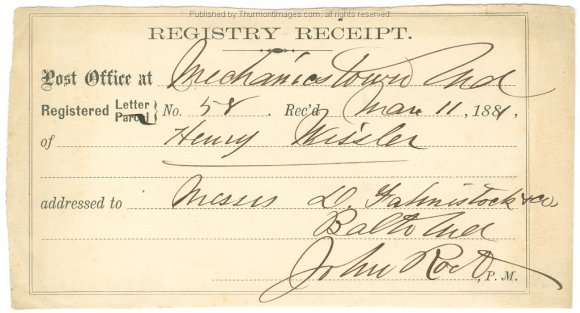 Published by Thurmontimages.com, all rights reserved
REGISTRY RECEIPT.
Post Office at Mechanicstown Md
Registered Letter Parcel } No. 58. Rec'd Mar 11, 1881,
of Henry Wissler
addressed to Messrs D. Fahnistock & Co
Balto Md
John Root, P. M.